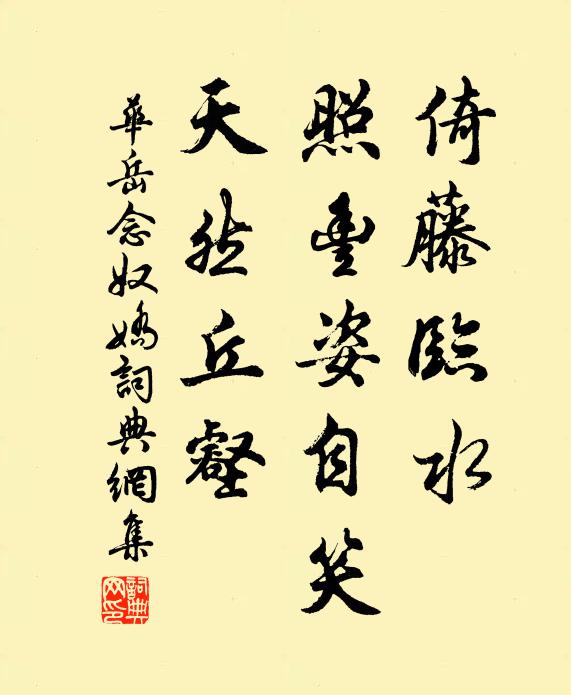 倚藤臨水
照豐姿自笑
天然丘壑
華岳念奴嬌詞典網集
詞典網印